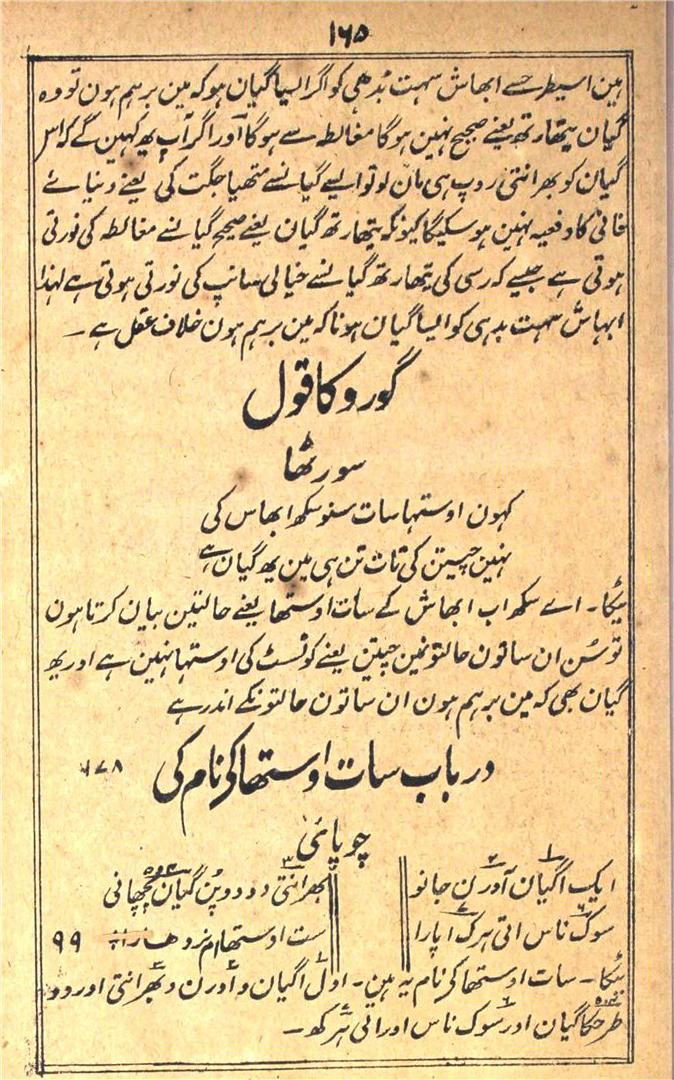 ۱۶۵
ہین اسیطرحسے ابھاش سہت بُدھی کو اگر ایسا گیان ہو کہ مین برہم ہون تو وہ
گیان یتھارتھ یعنے صحیح نہین ہوگا مغالطہ سے ہوگا اور اگر آپ یہ کہین گے کہ اس
گیان کو بھرانتی روپ ہی مان لو تو ایسے گیانسے متھیا جگت کی یعنے دنیائے
فانی کا دفعیہ نہین ہوسکیگا کیونکہ یتھارتھ گیان یعنے صحیح گیانسے مغالطہ کی نورتی
ہوتی ہے جیسے کہ رسی کی یتھارتھ گیانسے خیالی سانپ کی نورتی ہوتی ہے لہذا
ابہاش سہت بدہی کو ایسا گیان ہونا کہ مین برہم ہون خلاف عقل ہے ۔
گورو کا قول
سورٹھا
کہون اوستہا سات سنو سکھ ابھاس کی
نہین چیتن کی تات تن ہی مین یہ گیان ہے
ٹیکا ۔ اے سکھ اب ابھاش کے سات اوستھا یعنے حالتین بیان کرتا ہون
تو سُن ان ساتون حالتونمین چیتن یعنے کوٹسٹ کی اوستہا نہین ہے اور یہ
گیان بھی کہ مین برہم ہون ان ساتون حالتونکے اندر ہے
درباب سات اوستھا کے نام کی ۶۷۸
چوپائی
ایک اگیان آورن جانو بھرانتی دو دوپُن گیان پچھانی
سوک ناس اتی ہرکھ اپارا ست اوستھا ۹۹
ٹیکا ۔ سات اوستھا کے نام یہ ہین ۔ اول اگیان و آورن و بھرانتی اور دو
طرحکا گیان اور سوک ناس اور اتی ہرکھ ۔